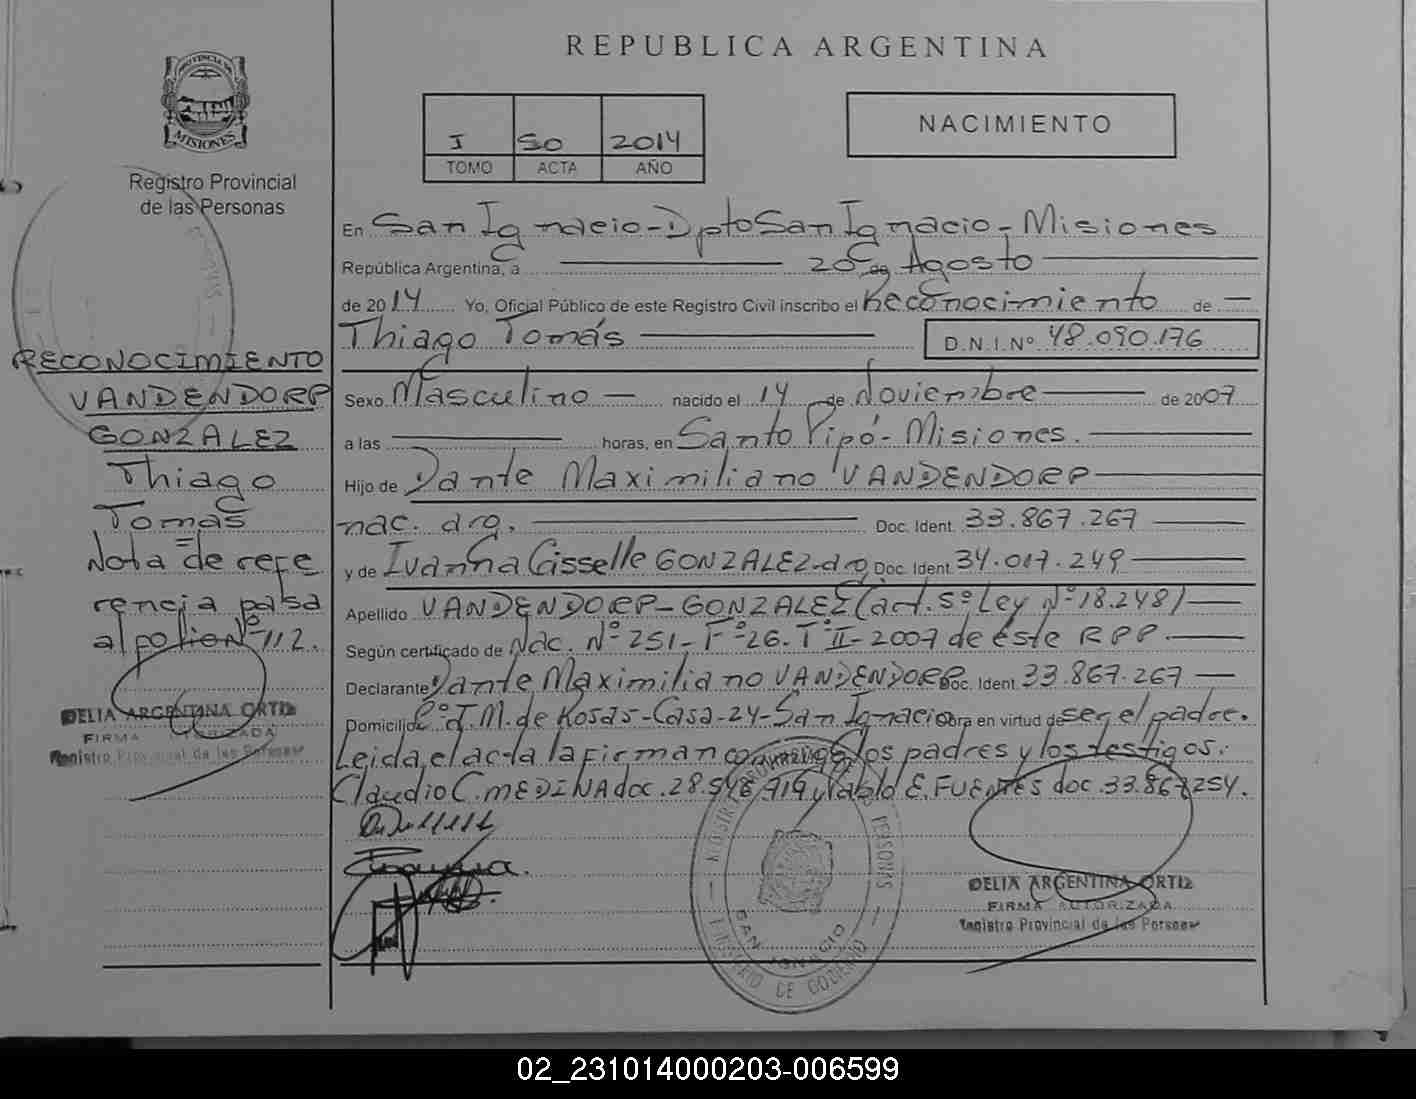 REPUBLICA ARGENTINA
PROVINCIA DE
MISIONES
Registro Provincial
de las Personas
I 50 2014
TOMO ACTA AÑO
NACIMIENTO
En San Ignacio-Dpto San Ignacio-Misiones
República Argentina, a 20 de Agosto
de 2014 Yo, Oficial Público de este Registro Civil inscribo el Reconocimiento de
Thiago Tomás D.N.I.Nº 48.090.176
Sexo Masculino nacido el 14 de Noviembre de 2007
a las horas, en Santo Pipó-Misiones.
Hijo de Dante Maximiliano VANDENDORP
nac. arg. Doc. Ident. 33.867.267
y de Ivanna Gisselle GONZALEZ-arg Doc. Ident. 34.017.249
Apellido VANDENDORP-GONZALEZ (art. 5º Ley Nº 18.248)
Según certificado de Nac. Nº 251-Fº26-TºII-2007 de éste RPP.
Declarante Dante Maximiliano VANDENDORP Doc. Ident. 33.867.267
Domicilio Bº J.M. de Rosas-Casa-24-San Ignacio Obra en virtud de ser el padre.
Leida el acta la firman conmigo los padres y los testigos:
Claudio C. MEDINA doc. 28.546.719 y Pablo E. FUENTES doc. 33.867.254.
RECONOCIMIENTO
VANDENDORP
GONZALEZ
Thiago
Tomás
Nota de refe
rencia pasa
al folio Nº 112.
DELIA ARGENTINA ORTIZ
FIRMA AUTORIZADA
Registro Provincial de las Personas
DELIA ARGENTINA ORTIZ
FIRMA AUTORIZADA
Registro Provincial de las Personas
SAN IGNACIO
MINISTERIO DE GOBIERNO
02_231014000203-006599